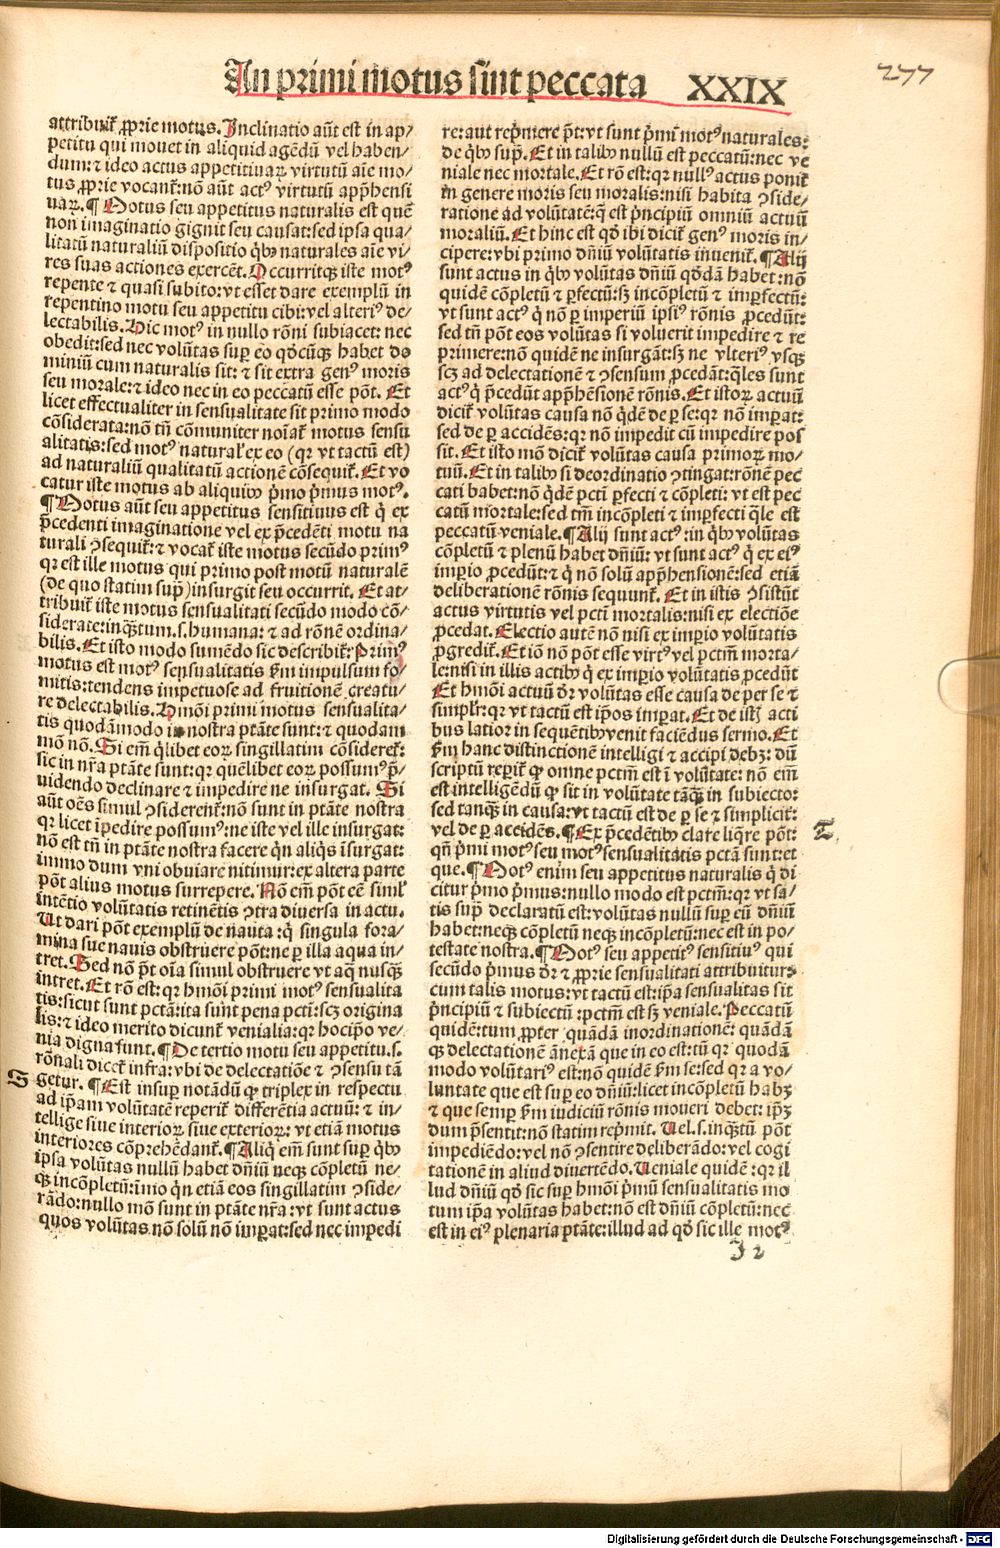 An primi motus sint peccata XXIX
277
attribuit̃ ꝓprie motus. Inclinatio aũt est in ap/
petitu qui mouet in aliquid agẽdũ vel haben/
dum: ⁊ ideo actus appetitiuaꝝ virtutũ aĩe mo/
tus ꝓprie vocant̃: nõ aũt actꝰ virtutũ app̃hensi
uaꝝ. ¶ Motus seu appetitus naturalis est quẽ
non imaginatio gignit seu causat: sed ipsa qua/
litatũ naturaliũ dispositio q̃bꝰ naturales aĩe vi/
res suas actiones exercẽt. Occurritqꝫ iste motꝰ
repente ⁊ quasi subito: vt esset dare exemplũ in
repentino motu seu appetitu cibi: vel alteriꝰ de/
lectabilis. Hic motꝰ in nullo rõni subiacet: nec
obedit: sed nec volũtas suꝑ eo qđcũqꝫ habet do
miniũ cum naturalis sit: ⁊ sit extra genꝰ moris
seu morale: ⁊ ideo nec in eo peccatũ esse põt. Et
licet effectualiter in sensualitate sit primo modo
cõsiderata: nõ tñ cõmuniter noĩat̃ motus sensu
alitatis: sed motꝰ natural̃ ex eo (qꝛ vt tactũ est)
ad naturaliũ qualitatũ actionẽ cõsequit̃. Et vo
catur iste motus ab aliquibꝰ p̃mo p̃mus motꝰ.
¶ Motus aũt seu appetitus sensitiuus est q̃ ex
p̃cedenti imaginatione vel ex p̃cedẽti motu na
turali ꝯsequit̃: ⁊ vocat̃ iste motus secũdo primꝰ
qꝛ est ille motus qui primo post motũ naturalẽ
(de quo statim sup̃) insurgit seu occurrit. Et at/
tribuit̃ iste motus sensualitati secũdo modo cõ/
siderate: inqꝫtum .s. humana: ⁊ ad rõnẽ ordina/
bilis. Et isto modo sumẽdo sic describit̃: Primꝰ
motus est motꝰ sensualitatis s̃m impulsum fo/
mitis: tendens impetuose ad fruitionẽ creatu/
re delectabilis. Hmõi primi motus sensualita/
tis quodãmodo in nostra ptãte sunt: ⁊ quodam
mõ nõ. Si em̃ q̃libet eoꝝ singillatim cõsideret̃:
sic in nr̃a ptãte sunt: qꝛ quẽlibet eoꝝ possumꝰ p̃/
uidendo declinare ⁊ impedire ne insurgat. Si
aũt oẽs simul ꝯsiderent̃: nõ sunt in ptãte nostra
qꝛ licet ĩpedire possumꝰ: ne iste vel ille insurgat:
nõ est tñ in ptãte nostra facere q̃n aliqͥs ĩsurgat:
immo dum vni obuiare nitimur: ex altera parte
põt alius motus surrepere. Nõ em̃ põt eẽ simil̃
intẽtio volũtatis retinẽtis ꝯtra diuersa in actu.
Ut dari põt exemplũ de nauta: q̃ singula fora/
mina sue nauis obstruere põt: ne ꝑ illa aqua in/
tret. Sed nõ p̃t oĩa simul obstruere vt aq̃ nusqꝫ
intret. Et rõ est: qꝛ hmõi primi motꝰ sensualita
tis: sicut sunt pctã: ita sunt pena pcti: scꝫ origina
lis: ⁊ ideo merito dicunt̃ venialia: qꝛ hocip̃o ve/
nia digna sunt. ¶ De tertio motu seu appetitu .s.
rõnali dicet̃ infra: vbi de delectatiõe ⁊ ꝯsensu tã
S getur. ¶ Est insuꝑ notãdũ ꝙ triplex in respectu
ad ip̃am volũtatẽ reperit̃ differẽtia actuũ: ⁊ in/
tellige siue interioꝝ siue exterioꝝ: vt etiã motus
interiores cõprehẽdant̃. ¶ Aliqͥ em̃ sunt suꝑ q̃bꝰ
ipsa volũtas nullũ habet dñiũ neqꝫ cõpletũ ne/
qꝫ incõpletũ: ĩmo q̃n etiã eos singillatim ꝯside/
rãdo: nullo mõ sunt in ptãte nr̃a: vt sunt actus
quos volũtas nõ solũ nõ imꝑat: sed nec impedi
re: aut rep̃mere p̃t: vt sunt p̃mi motꝰ naturales:
de q̃bꝰ sup̃. Et in talibꝰ nullũ est peccatũ: nec ve
niale nec mortale. Et rõ est: qꝛ nullꝰ actus ponit̃
in genere moris seu moralis: nisi habita ꝯside/
ratione ad volũtatẽ: q̃ est p̃ncipiũ omniũ actuũ
moraliũ. Et hinc est qđ ibi dicit̃ genꝰ moris in/
cipere: vbi primo dñiũ volũtatis inuenit̃. ¶ Alij
sunt actus in q̃bꝰ voluͦtas dñiũ qđdã habet: nõ
quidẽ cõpletũ ⁊ ꝑfectũ: sꝫ incõpletũ ⁊ imꝑfectũ:
vt sunt actꝰ q̃ nõ ꝑ imperiũ ipsiꝰ rõnis ꝓcedũt:
sed tñ põt eos voluͦtas si voluerit impedire ⁊ re
primere: nõ quidẽ ne insurgãt: sꝫ ne vlteriꝰ vsqꝫ
scꝫ ad delectationẽ ⁊ ꝯsensum ꝓcedãt: q̃les sunt
actꝰ q̃ p̃cedũt app̃hẽsionẽ rõnis. Et istoꝝ actuũ
dicit̃ volũtas causa nõ q̃dẽ de ꝑ se: qꝛ nõ imꝑat:
sed de ꝑ accidẽs: qꝛ nõ impedit cũ impedire pos
sit. Et isto mõ dicit̃ volũtas causa primoꝝ mo/
tuũ. Et in talibꝰ si deordinatio ꝯtingat: rõnẽ pec
cati habet: nõ q̃dẽ pcti ꝑfecti ⁊ cõpleti: vt est pec
catũ mortale: sed tm̃ incõpleti ⁊ imꝑfecti q̃le est
peccatũ veniale. ¶ Alij sunt actꝰ: in q̃bꝰ voluͦtas
cõpletũ ⁊ plenũ habet dñiũ: vt sunt actꝰ q̃ ex eiꝰ
imꝑio ꝓcedũt: ⁊ q̃ nõ solũ app̃hensionẽ: sed etiã
deliberationẽ rõnis sequunt̃. Et in istis ꝯsistũt
actus virtutis vel pcti mortalis: nisi ex electiõe
ꝓcedat. Electio autẽ nõ nisi ex imꝑio voluͦtatis
ꝓgredit̃. Et iõ nõ põt esse virtꝰ vel pctm̃ morta/
le: nisi in illis actibꝰ q̃ ex imꝑio volũtatis ꝓcedũt
Et hmõi actuũ dr̃ voluͦtas esse causa de per se ⁊
simpl̃r: qꝛ vt tactũ est ip̃os imꝑat. Et de istꝭ acti
bus latior in sequẽtibꝰ venit faciẽdus sermo. Et
s̃m hanc distinctionẽ intelligi ⁊ accipi dꝫbꝫ: dũ
scriptũ reꝑit̃ ꝙ omne pctm̃ est ĩ volũtate: nõ em̃
est intelligẽdũ ꝙ sit in voluͦtate tãqꝫ in subiecto:
sed tanqꝫ in causa: vt tactũ est de ꝑ se ⁊ simplicit̃:
vel de ꝑ accidẽs. ¶ Ex p̃cedẽtibꝰ clare liq̃re põt: T
qñ p̃mi motꝰ seu motꝰ sensualitatis pctã sunt: et
que. ¶ Motꝰ enim seu appetitus naturalis q̃ di
citur p̃mo p̃mus: nullo modo est pctm̃: qꝛ vt sa/
tis sup̃ declaratũ est: volũtas nullũ suꝑ eũ dñiũ
habet: neqꝫ cõpletũ neqꝫ incõpletũ: nec est in po/
testate nostra. ¶ Motꝰ seu appetitꝰ sensitiuꝰ qui
secũdo p̃mus dr̃ ⁊ ꝓprie sensualitati attribuitur:
cum talis motus: vt tactũ est: ip̃a sensualitas sit
p̃ncipiũ ⁊ subiectũ: pctm̃ est sꝫ veniale. Peccatũ
quidẽ: tum ꝓpter quãdã inordinationẽ: quãdã
qꝫ delectationẽ ãnexã que in eo est: tũ qꝛ quodã
modo volũtariꝰ est: nõ quidẽ s̃m se: sed qꝛ a vo/
luntate que est suꝑ eo dñiũ: licet incõpletũ habꝫ
⁊ que semꝑ s̃m iudiciũ rõnis moueri debet: ip̃ꝫ
dum p̃sentit: nõ statim rep̃mit. Uel .s. inqꝫtũ põt
impediẽdo: vel nõ ꝯsentire deliberãdo: vel cogi
tationẽ in aliud diuertẽdo. Ueniale quidẽ: qꝛ il
lud dñiũ qđ sic suꝑ hmõi p̃mũ sensualitatis mo
tum ip̃a voluͦtas habet: nõ est dñiũ cõpletũ: nec
est in eiꝰ plenaria ptãte: illud ad qđ sic ille motꝰ
J 2
Digitalisierung gefördert durch die Deutsche Forschungsgemeinschaft - DFG